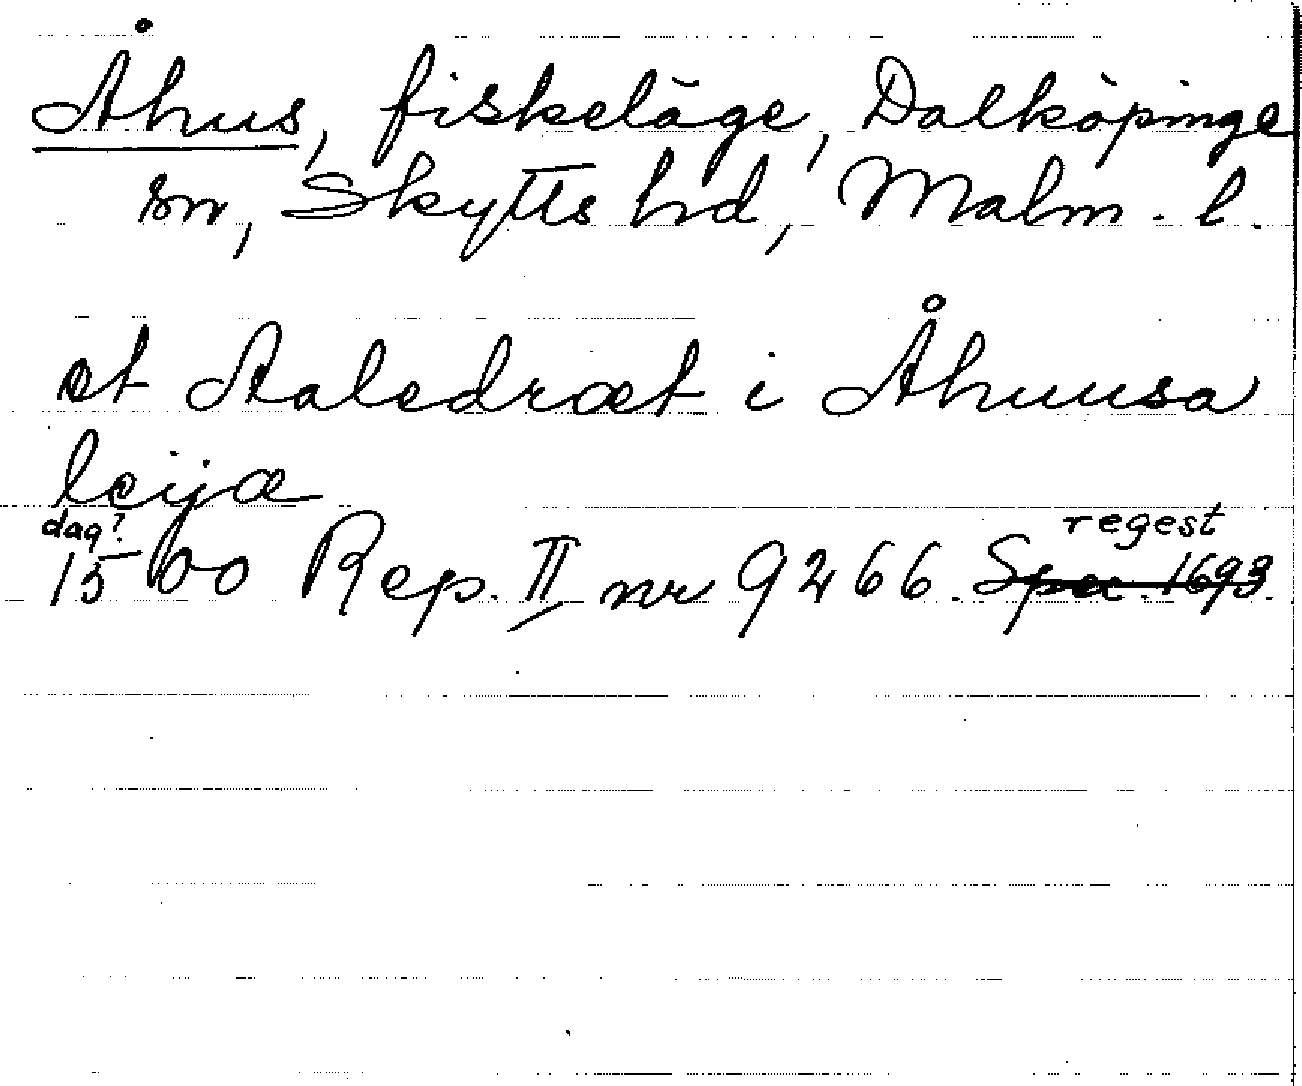 Åhus, fiskeläge, Dalköpinge
sn, Skytts hd, Malm. l.
et Aaledræt i Åhuusa
leijæ
dag? regest
1500 Rep. II nr 9266. Spec. 1693.